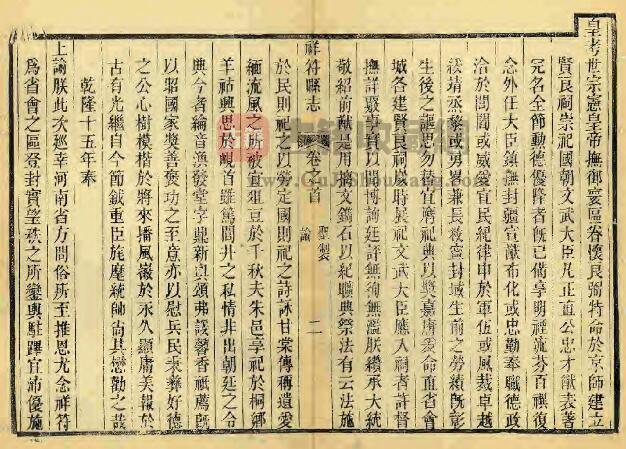 皇考世宗憲皇帝撫御寰區眷懷良弼特命於京師建立
賢良祠崇祀國朝文武大臣凡正直公忠才猷表著
完名全節勳德優隆者旣已備享明禋流芬百禩復
念外任大臣鎮撫封疆宣猷布化或忠勤奉職德政
洽於閭閻或威愛宜民紀律申於軍伍或風裁卓越
綏靖蒸黎或勇畧兼長救寧封域生前之勞績旣彰
生後之謳思勿替宜膺祀典以奬嘉猷爰命直省會
城各建賢良祠歲時展祀文武大臣應入祠者許督
撫詳覈享實以聞博諭廷評無徇無濫朕纘承大統
敬紹前猷是用摛文鐫石以紀曠典祭法有云法施
祥符縣志 卷之首 聖製 諭 二
於民則祀之以勞定國則祀之詩詠甘棠傳稱遺愛
緬流風之所被宜俎豆於千秋夫朱邑享祀於桐鄉
羊祜興思於峴首雖篤閭井之私情非出朝廷之令
典今者綸音渙發堂宇鼎新貞頌弗諼馨香祗薦旣
以昭國家奬善褒功之至意亦以慰兵民秉彝好德
之公心樹模楷於將來播風徽於永久顯庸美報於
古有光繼自今節鉞重臣旄麾統帥尙其懋勸之哉
乾隆十五年奉
上諭朕此次巡幸河南省方問俗所至推恩尤念祥符
爲省會之區登封實望秩之所鑾輿駐蹕宜沛優施
www.GuJiShouCang.com